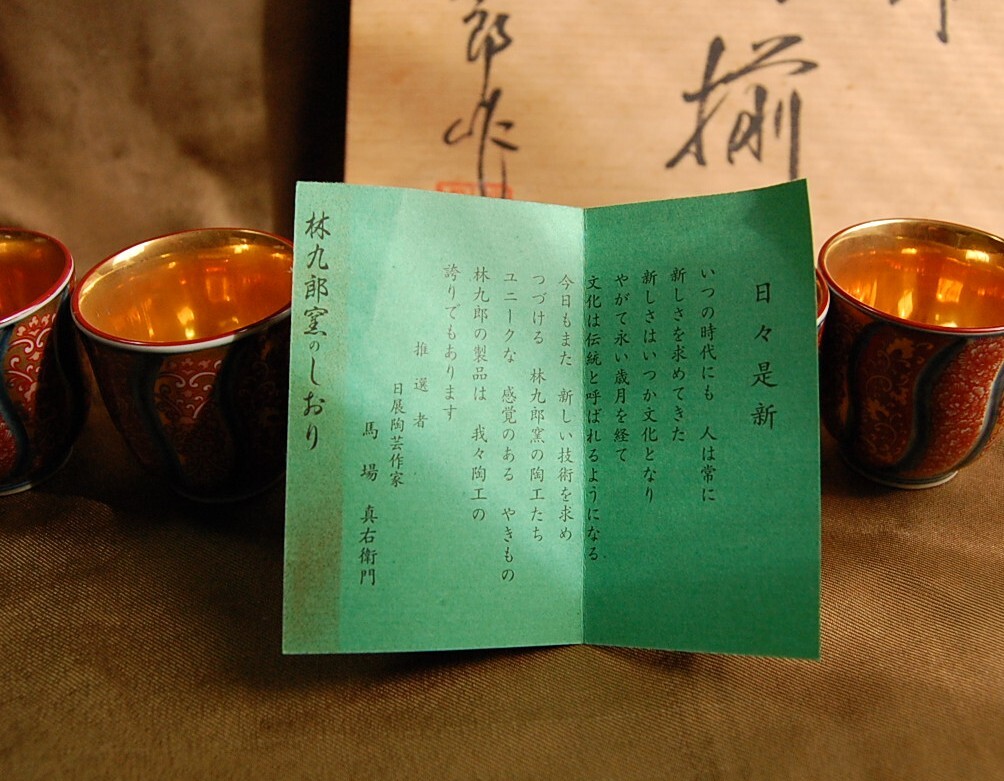 揃
郎作
日々是新
いつの時代にも　人は常に
新しさを求めてきた
新しさはいつか文化となり
やがて永い歳月を経て
文化は伝統と呼ばれるようになる
今日もまた　新しい技術を求め
つづける　林九郎窯の陶工たち
ユニークな　感覚のある　やきもの
林九郎の製品は　我々陶工の
誇りでもあります
推選者
日展陶芸作家
馬場真右衛門
林九郎窯のしおり